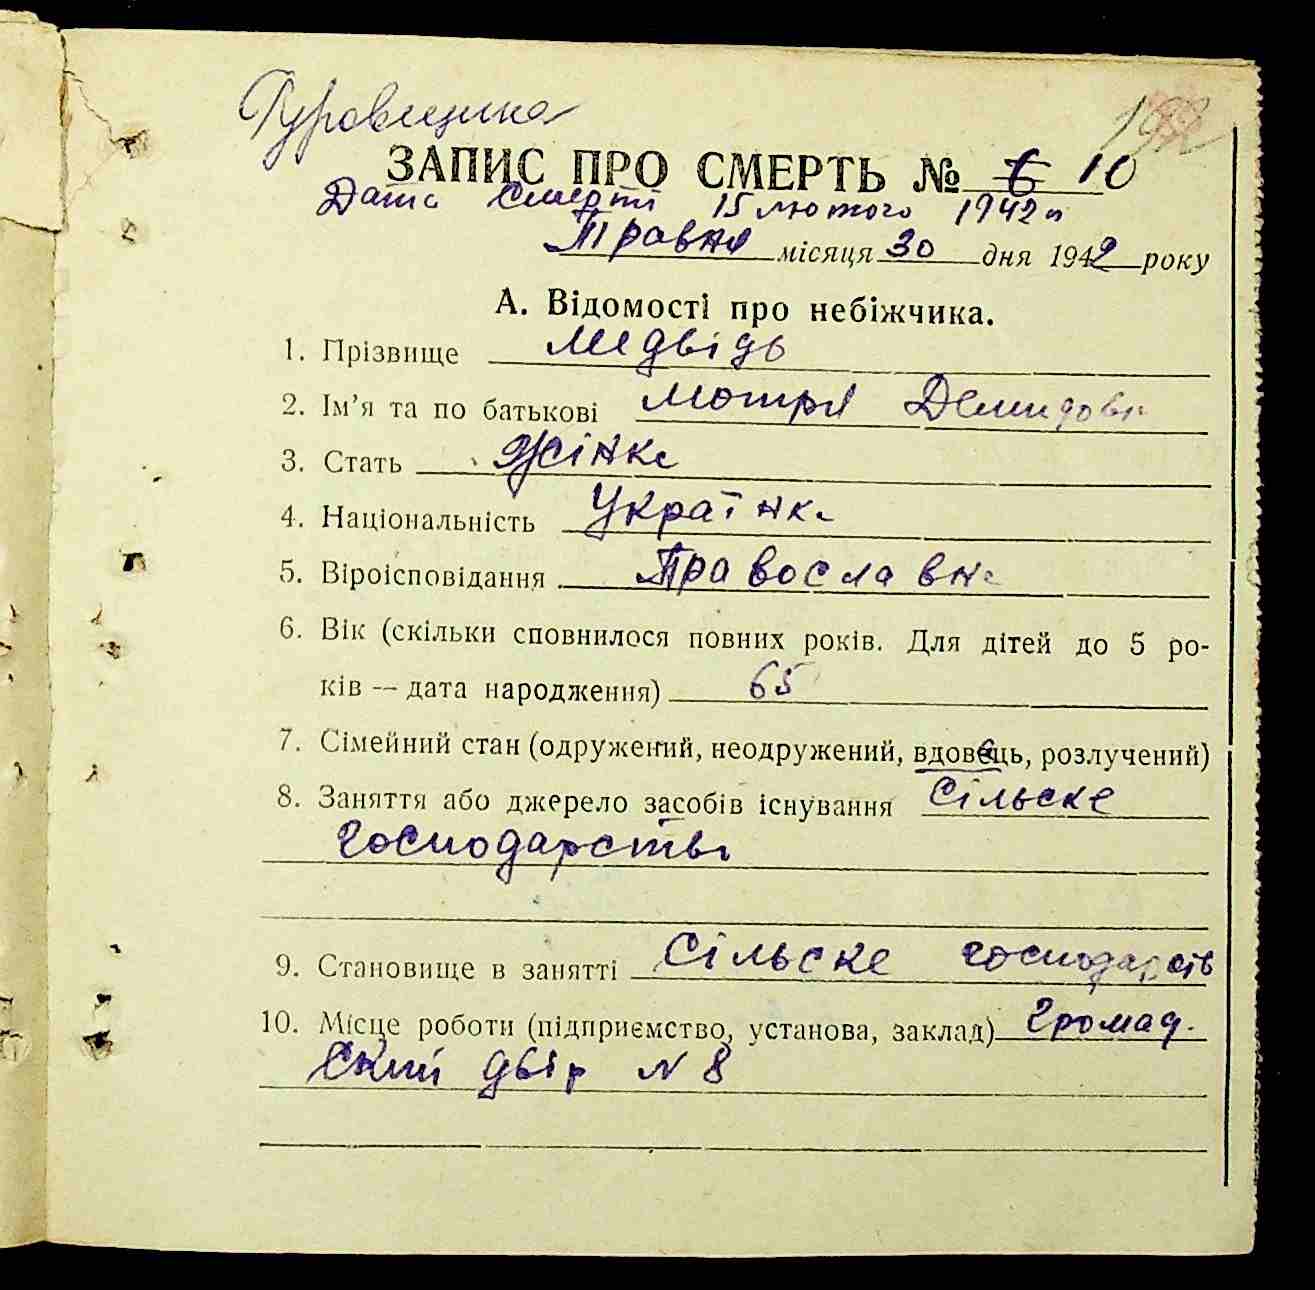 Гуровщина
ЗАПИС ПРО СМЕРТЬ № 6 10
Дата Смерті 15 лютого 1942 р
Травня місяця 30 дня 1942 року
А. Відомості про небіжчика.
1. Прізвище Медвідь
2. Ім'я та по батькові Мотря Демидовн
3. Стать Жінка
4. Національність Українка
5. Віроісповідання Православна
6. Вік (скільки сповнилося повних років. Для дітей до 5 ро-
ків — дата народження) 65
7. Сімейний стан (одружений, неодружений, вдовець, розлучений)
8. Заняття або джерело засобів існування Сільске
господарство
9. Становище в занятті Сільске господарств
10. Місце роботи (підприємство, установа, заклад) Громад.
ский двір N 8